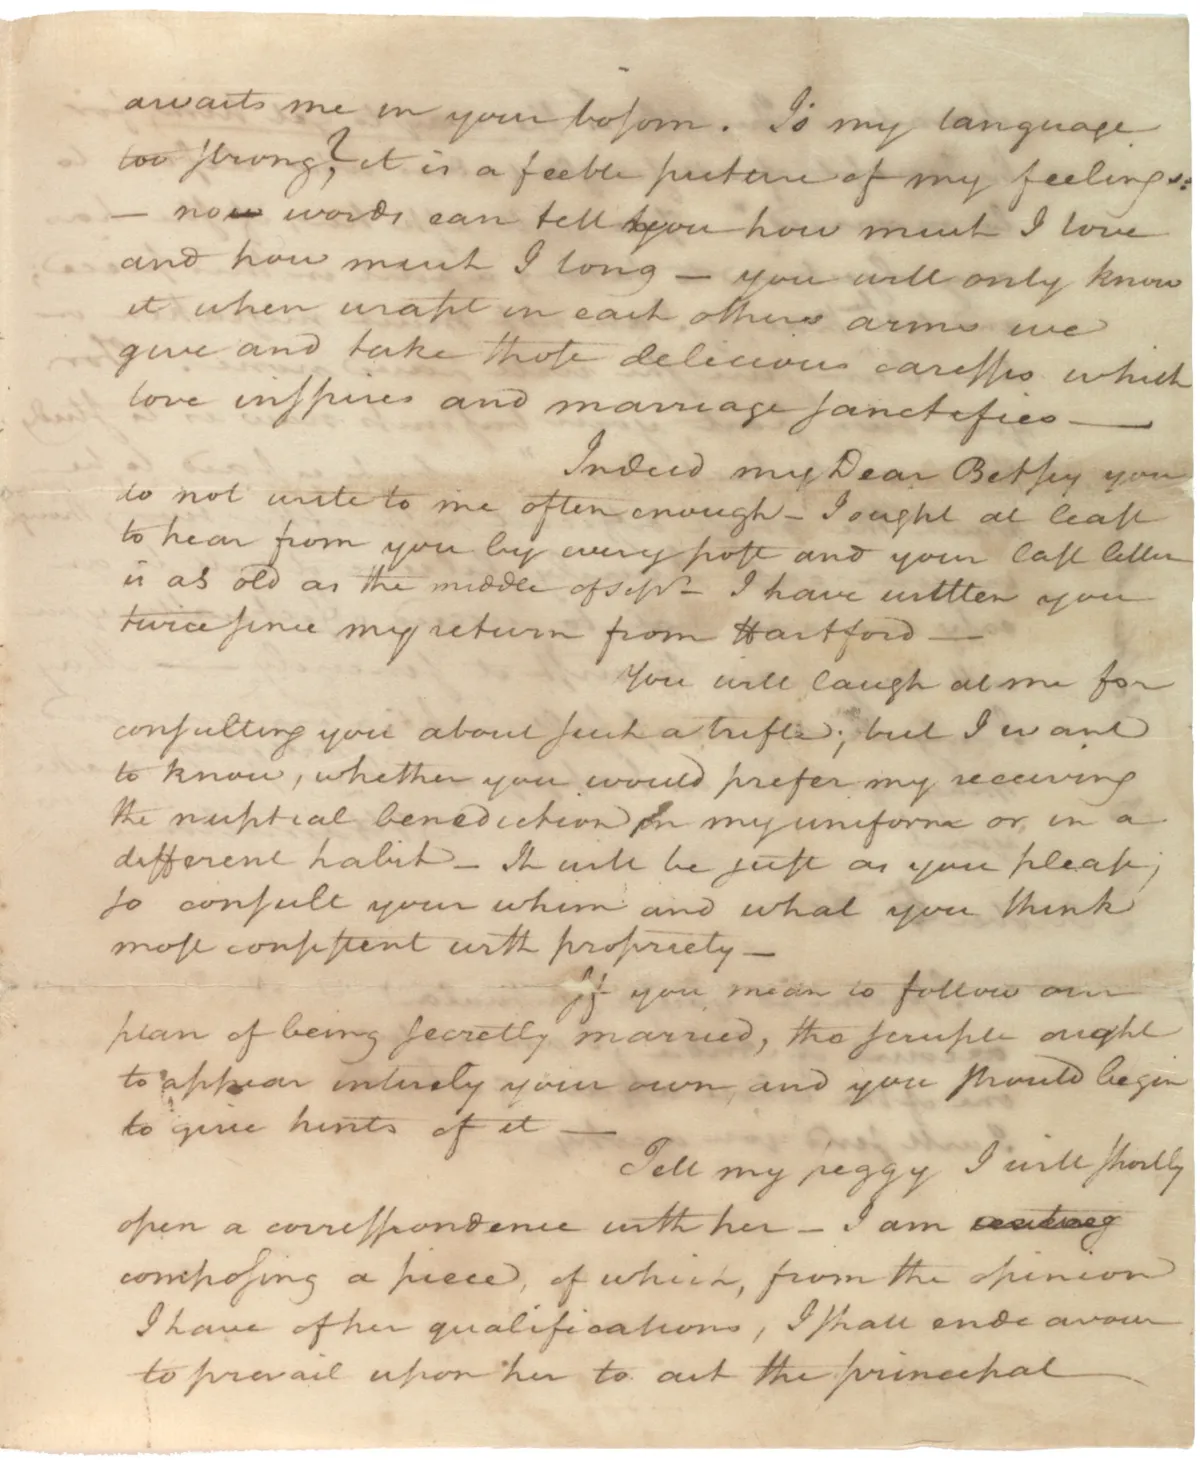 awaits me in your bosom. Is my language
too strong? it is a feeble picture of my feelings:
— no words can tell you how much I love
and how much I long — you will only know
it when wrapt in each others arms we
give and take those delicious caresses which
love inspires and marriage sanctifies —
Indeed my Dear Betsey you
do not write to me often enough — I ought at least
to hear from you by every post and your last letter
is as old as the middle of Sepr — I have written you
twice since my return from Hartford —
You will laugh at me for
consulting you about such a trifle; but I want
to know, whether you would prefer my receiving
the nuptial benediction in my uniform or in a
different habit — It will be just as you please;
so consult your whim and what you think
most consistent with propriety —
If you mean to follow our
plan of being secretly married, the scruple ought
to appear intirely your own and you should begin
to give hints of it —
Tell my peggy I will shortly
open a correspondence with her — I am
composing a piece, of which, from the opinion
I have of her qualifications, I shall endeavour
to prevail upon her to act the principal